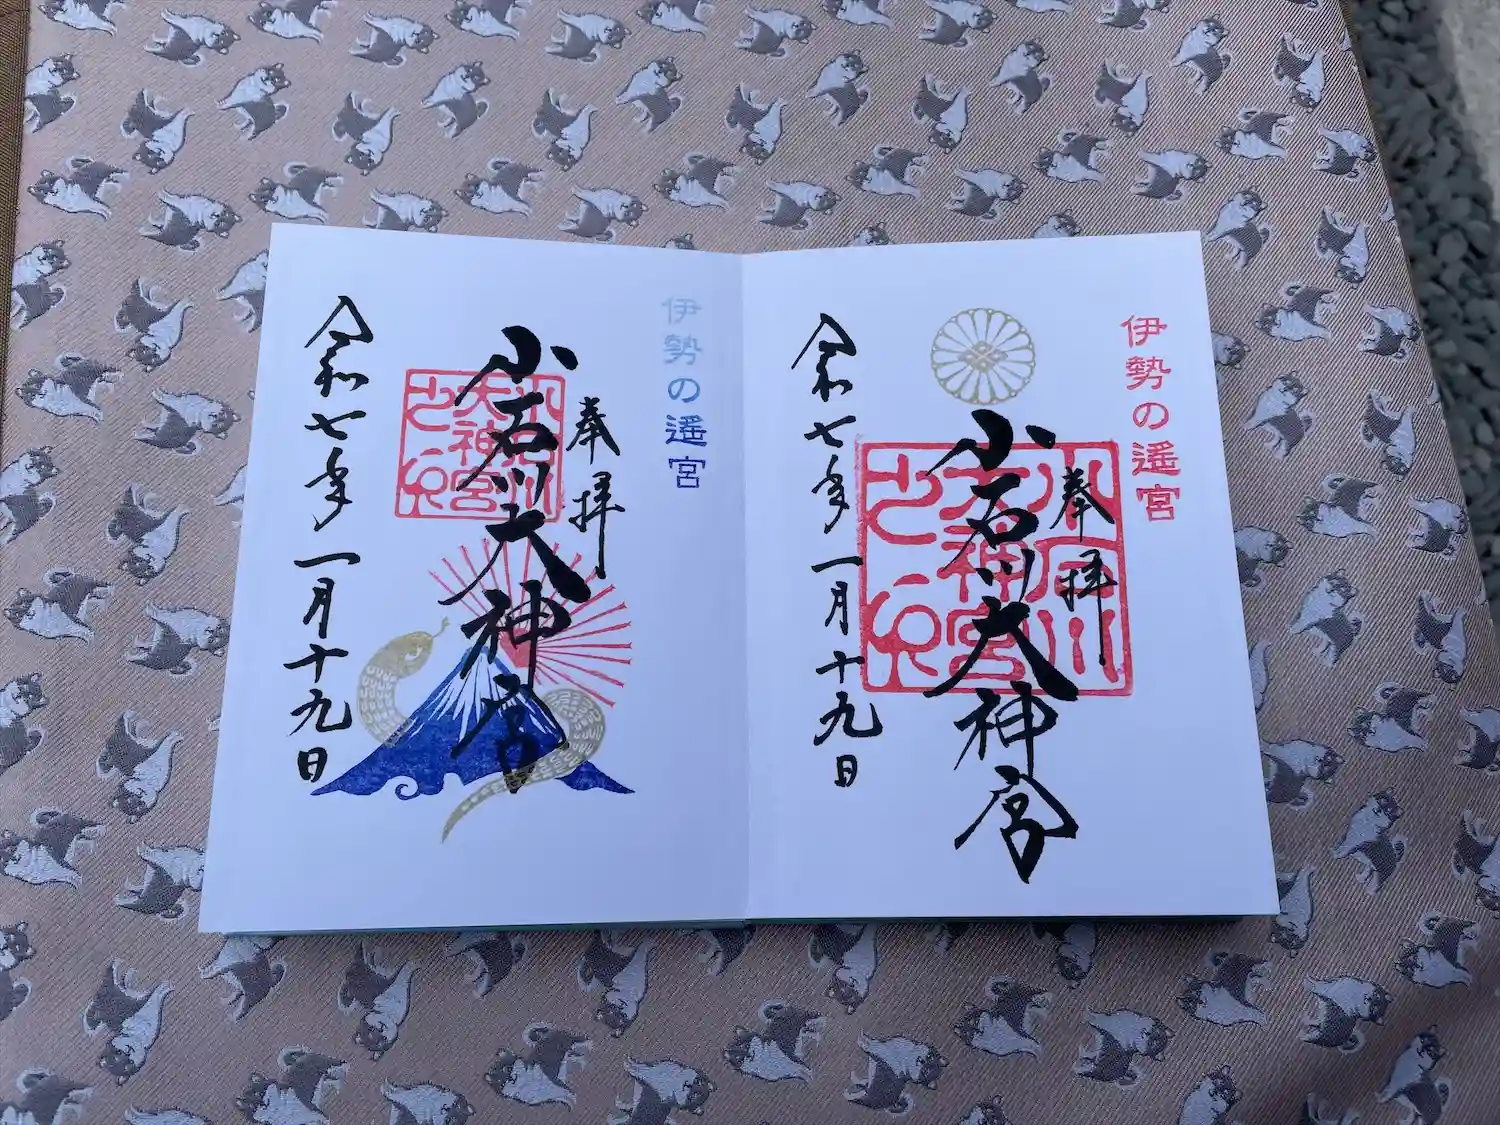 伊勢の遥宮
奉拝
小石川大神宮
小石川
大神宮
之印
令和七年一月十九日
伊勢の遥宮
奉拝
小石川大神宮
小石川
大神宮
之印
令和七年一月十九日